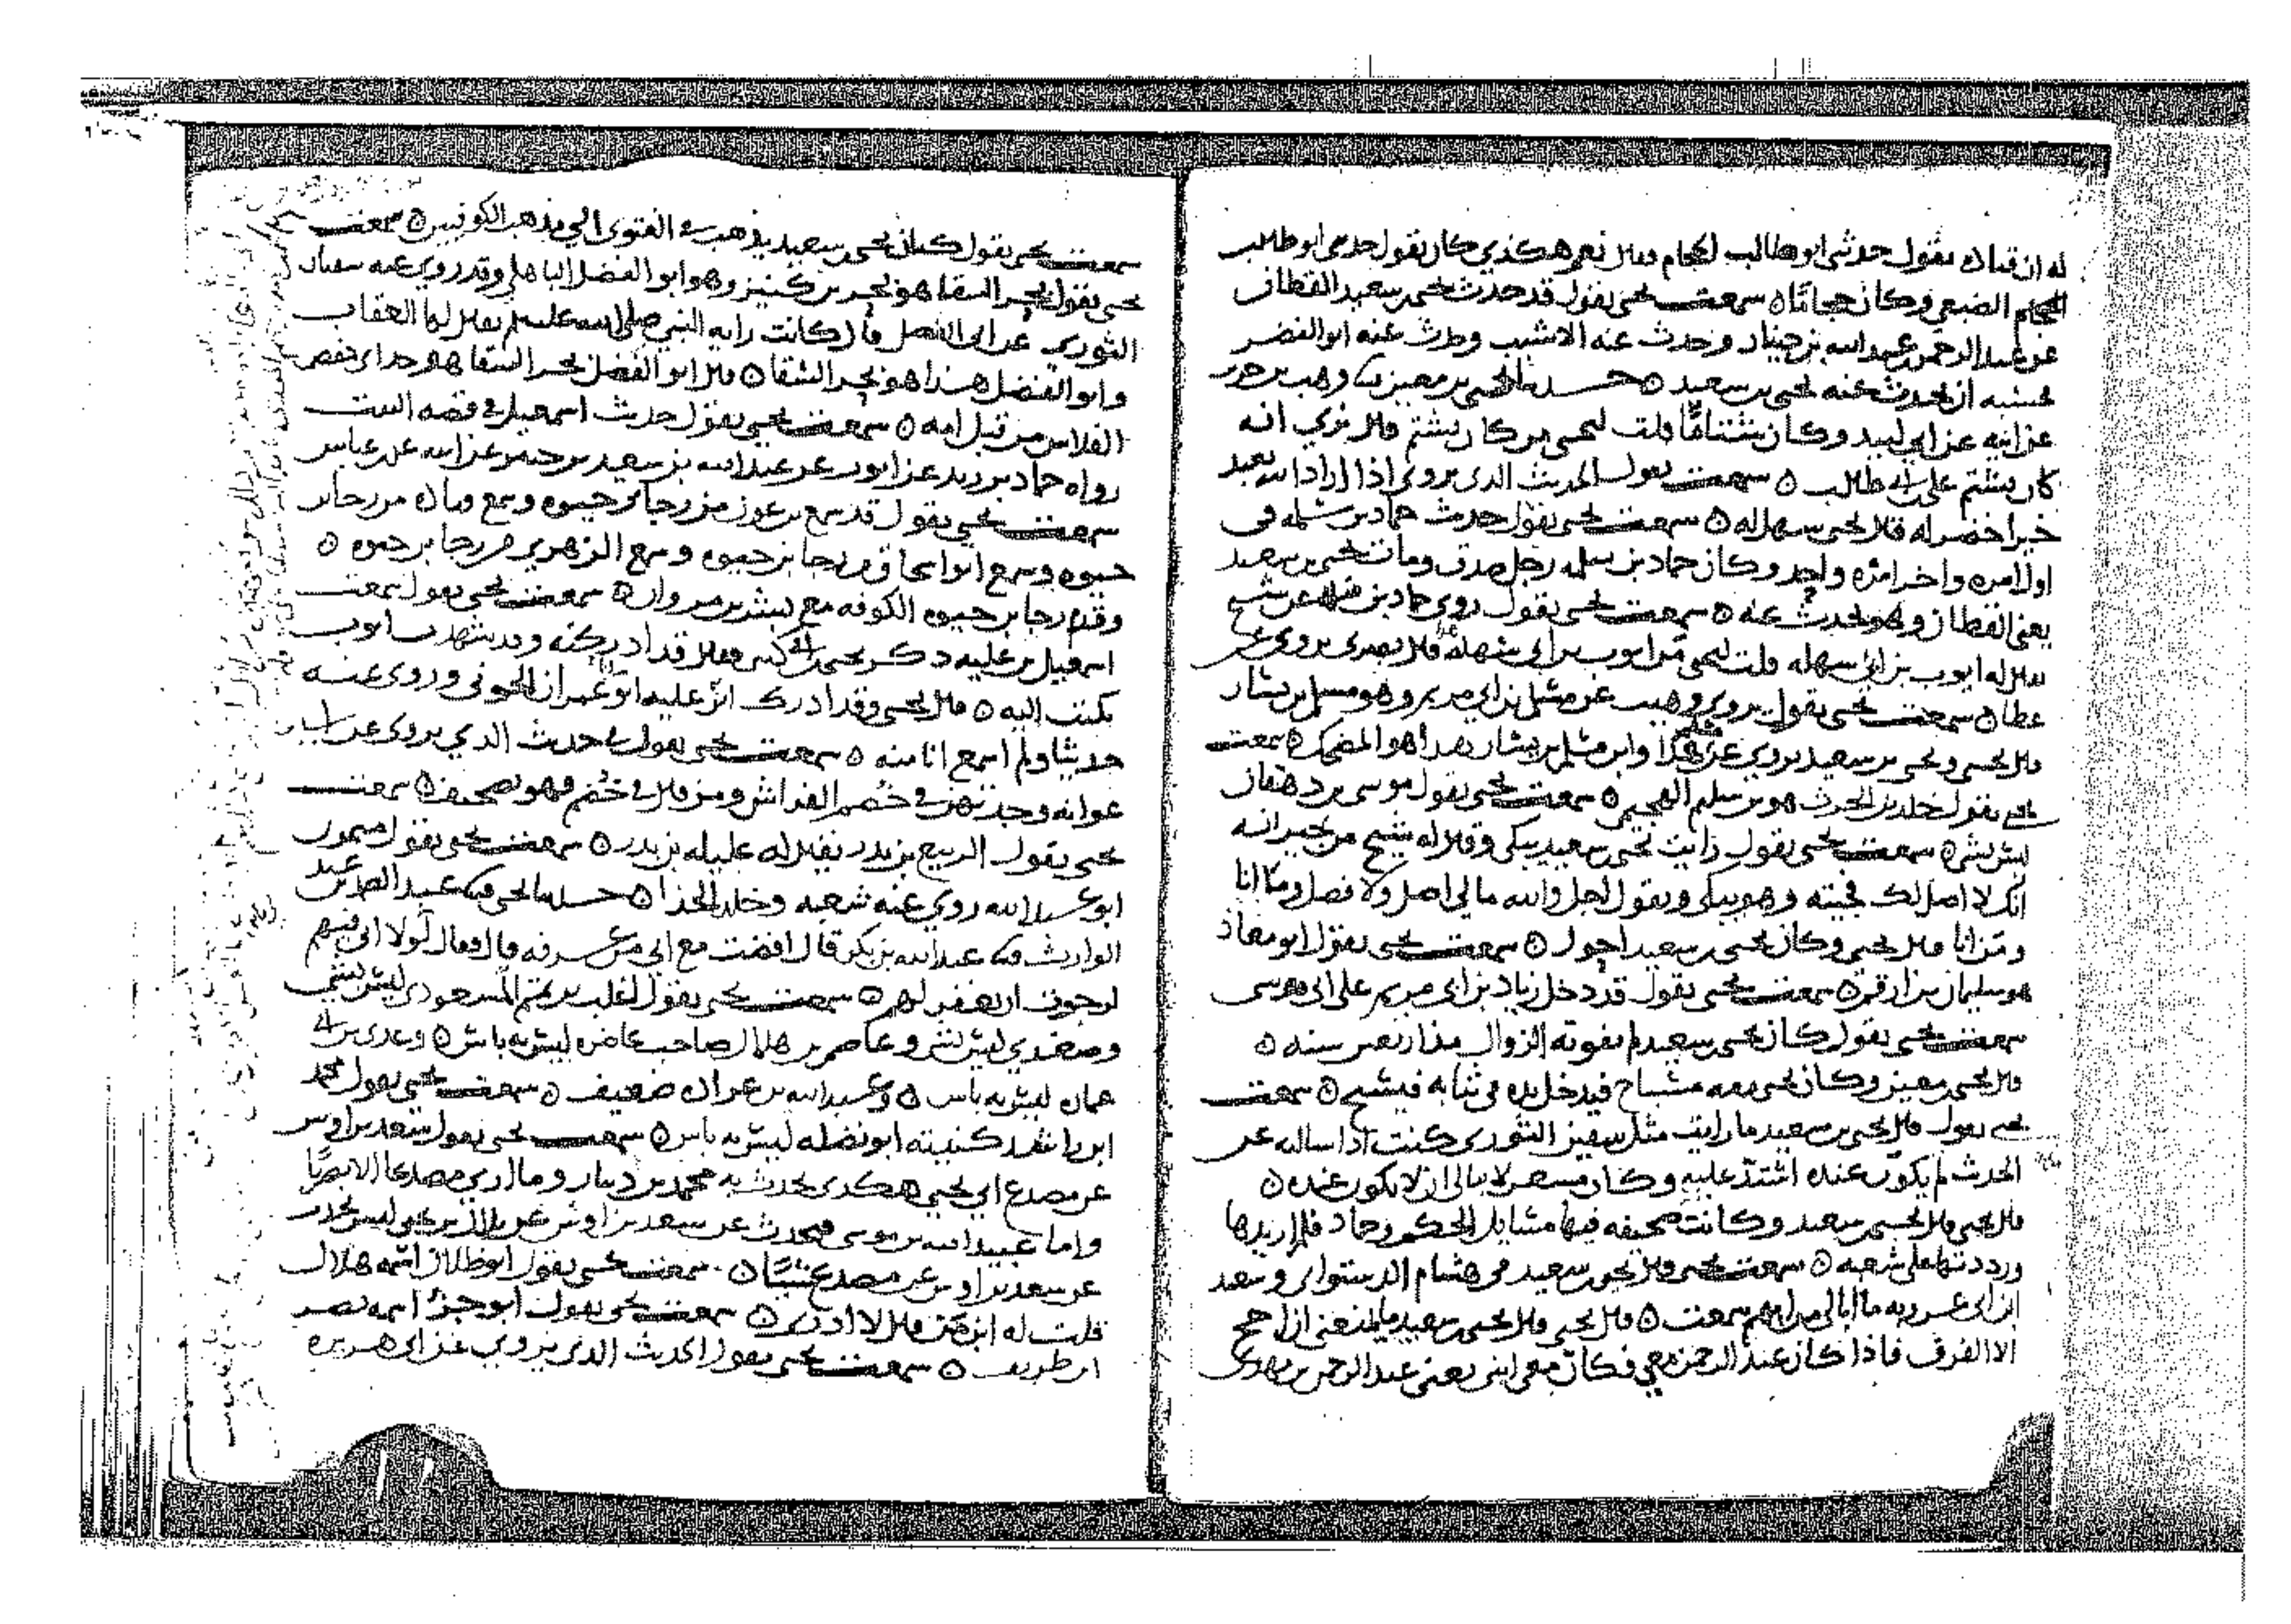 له ان قتاده يقول حدثني ابو طالب الحجام فقال نعم هكذي كان يقول حدثني ابو طالب
الحجام الضبعي وكان حجاما ه سمعت يحيى يقول قد حدث يحيى بن سعيد القطان
عن عبد الرحمن بن عبد الله بن دينار وحدث عنه الاشيب وحدث عنه ابو النضر
فحسبه ان يحدث عنه يحيى بن سعيد ه حدثنا يحيى بن معين نا وهب بن جرير
عن ابيه عن ابي لبيد وكان شتاما قلت ليحيى من كان يشتم قال نرى انه
كان يشتم علي بن ابي طالب ه سمعت يقول الحديث الذي يروى اذا اراد الله بعبد
خيرا خضر له قال يحيى سهل له ه سمعت يحيى يقول حديث حماد بن سلمه في
اول امره واخر امره واحد وكان حماد بن سلمه رجل صدق ومات يحيى بن سعيد
يعني القطان وهو يحدث عنه ه سمعت يحيى يقول روى حماد بن سلمه عن شيخ
يقال له ايوب بن ابي سهله قلت ليحيى من ايوب بن ابي سهله قال بصري يروي عن
عطا ه سمعت يحيى يقول يروي وهيب عن مسلم بن ابي مريم وهو مسلم بن يسار
قال يحيى ويحيى بن سعيد يروي عن هذا وابن مسلم بن يسار بعد اهو المضحك ه سمعت
يحيى يقول خلد بن الحرث هو بن سليم الهجيمي ه سمعت يحيى يقول موسى بن دهقان
ليس بشي ه سمعت يحيى يقول رايت يحيى بن سعيد يبكي وقال له شيخ من جيرانه
انك لا اصل لك فجيته وهو يبكي ويقول اجل والله مالي اصل ولا فصل وما انا
ومن انا قال يحيى وكان يحيى بن سعيد احول ه سمعت يحيى يقول ابو معاذ
هو سليمان بن ارقم ه سمعت يحيى يقول قد دخل زياد بن ابي مريم على ابي موسى
سمعت يحيى يقول كان يحيى بن سعيد لم يفوته الزوال مذ اربعين سنه ه
قال يحيى بن معين وكان يحيى معه مسباح فيدخل يده في ثيابه فيسبح ه سمعت
يحيى يقول قال يحيى بن سعيد ما رايت مثل سفين الثوري كنت اذا سالته عن
الحديث لم يكون عنده اشتد عليه وكان مسعر لا يبالي ان لا يكون عنده ه
قال يحيى قال يحيى بن سعيد وكانت صحيفه فيها مسايل الحكم وحماد فلم اريدها
ورددتها على شعبه ه سمعت يحيى قال يحيى بن سعيد من هشام الدستوائي وسعيد
ابن ابي عروبه ما ابالي من ايهم سمعت ه قال يحيى قال يحيى بن سعيد ما يمنعني ان احج
الا الفرق فاذا كان عبد الرحمن معي فكان معي ابني يعني عبد الرحمن بن مهدي
سمعت يحيى يقول كان يحيى بن سعيد يذهب في الفتوى الى مذهب الكوفيين ه سمعت
يحيى يقول بحر السقا هو بحر بن كنيز وهو ابو الفضل الباهلي وقد روى عنه سفيان
الثوري عن ابي الفضل قال كانت رايه النبي صلى الله عليه وسلم يقال لها العقاب
وابو الفضل هذا هو بحر السقا ه قال ابو الفضل بحر السقا هو جد ابي حفص
الفلاس من قبل امه ه سمعت يحيى يقول حديث اسمعيل في قصه البيت
رواه حماد بن زيد عن ايوب عن عبد الله بن سعيد بن جبير عن ابيه عن بن عباس
سمعت يحيى يقول قد سمع بن عون من رجا بن حيوه وسمع قتاده من رجا بن
حيوه وسمع ابو اسحاق من رجا بن حيوه وسمع الزهري من رجا بن حيوه ه
وقدم رجا بن حيوه الكوفه مع بشر بن مروان ه سمعت يحيى يقول سمعت
اسمعيل بن عليه ذكر يحيى بن ابي كثير فقال قد ادركته وقد شهدت ايوب
يكتب اليه ه قال يحيى وقد ادرك ابن عليه ابو عمران الجوني وروى عنه
حديثا ولم اسمع انا منه ه سمعت يحيى يقول في حديث الذي يروى عن ابي
عوانه وجدتهن في خصم الفراش ومن قال في خضم فهو تصحيف ه سمعت
يحيى يقول الربيع بن بدر يقال له عليله بن بدر ه سمعت يحيى يقول ميمون
ابو عبد الله روى عنه شعبه وخلد الحذا ه حدثنا يحيى نا عبد الصمد بن عبد
الوارث نا عبد الله بن بكر قال افضت مع ابي من عرفه قال فقال لولا اني فيهم
لرجوت ان يغفر لهم ه سمعت يحيى يقول اغلب بن تميم المسعودي ليس بشي
وصغدي ليس بشي وعاصم بن هلال صاحب ليس به باس ه وعدي بن ابي
عماره ليس به باس ه وعبيد الله بن عمران ضعيف ه سمعت يحيى يقول محمد
ابن راشد كنيته ابو فضله ليس به باس ه سمعت يحيى يقول سعد بن اوس
عن مصدع ابي يحيى هكذى يحدث به محمد بن دينار وما ارى مصدعا الا نصا
واما عبيد الله بن موسى فيحدث عن سعد بن اوس عن بلال بن يحيى ليس يحدث
عن سعد بن اوس عن مصدع شيا ه سمعت يحيى يقول ابو ظلال اسمه هلال
قلت له ابن من قال لا ادري ه سمعت يحيى يقول ابو جزء اسمه نصر
ابن طريف ه سمعت يحيى يقول الحديث الذي يروي عن ابي هريره